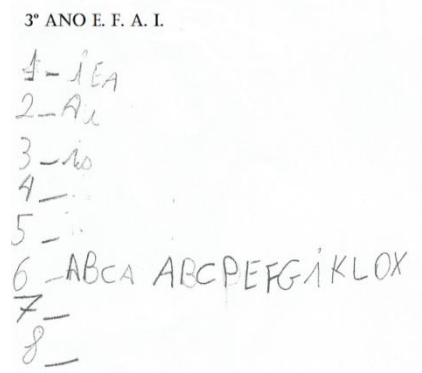 3º ANO E. F. A. I.
1 - iEA
2 - Ai
3 - io
4 -
5 -
6 - ABCA ABCPEFGiKLOX
7 -
8 -